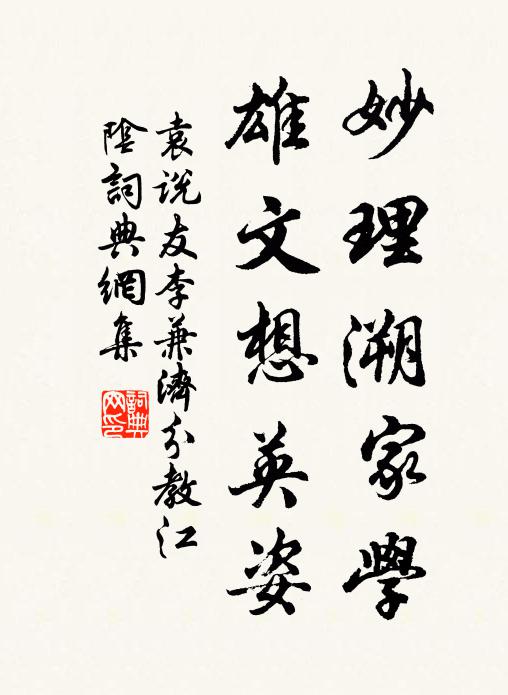 妙理溯家學
雄文想英姿
袁説友李兼濟分教江
陰詞典網集
詞典网印